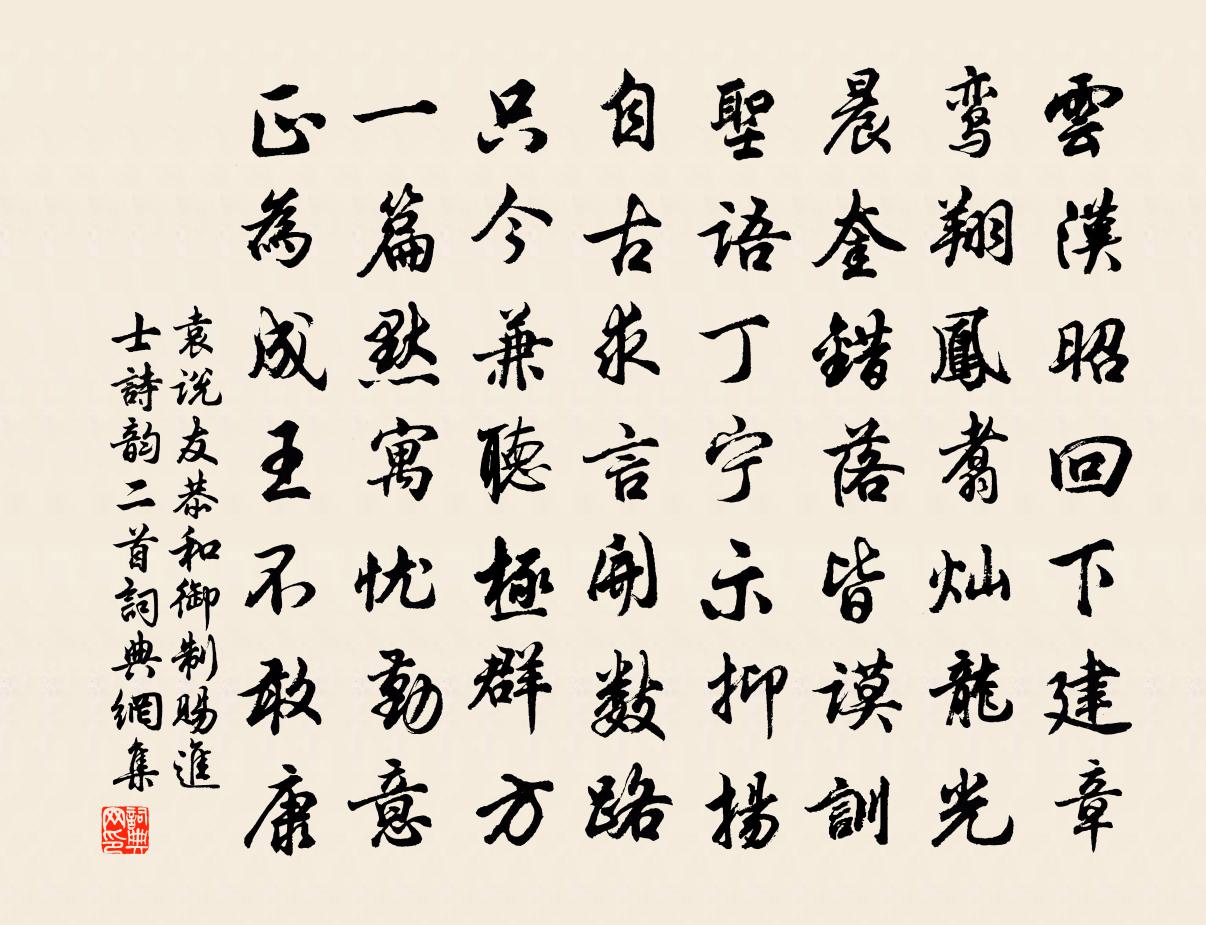 雲漢昭回下建章
鸾翔鳳翥灿龍光
晨奎錯落皆謨訓
聖语丁宁示抑揚
自古求言開数路
只今兼聽極群方
一篇默寓忧勤意
正為成王不敢康
袁说友恭和御制賜進
士詩韵二首詞典網集
詞典
网印